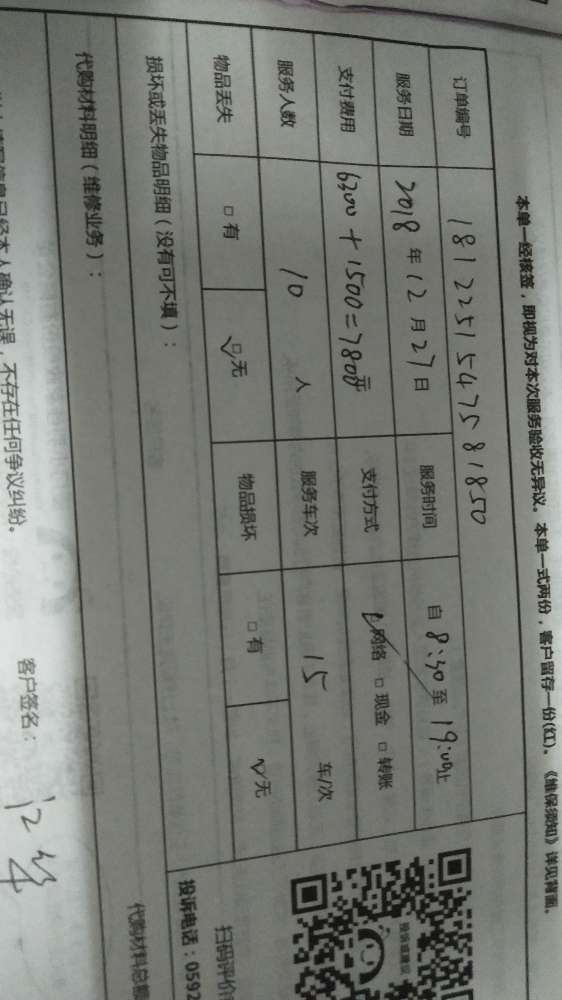 本单一经核签，即视为对本次服务验收无异议。本单一式两份，客户留存一份(红)。《维保须知》详见背面。
订单编号 181225154757581850
服务日期 2018年12月27日 服务时间 自8:30至19:00止
支付费用 6300+1500=7800元 支付方式 ☑网络 □现金 □转账
服务人数 10人 服务车次 15车/次
物品丢失 □有 ☑无 物品损坏 □有 ☑无
损坏或丢失物品明细（没有可不填）：
代购材料明细（维修业务）：
代购材料总额
投诉或建议
扫码评价
投诉电话：0592
信息已经本人确认无误，不存在任何争议纠纷。
客户签名：